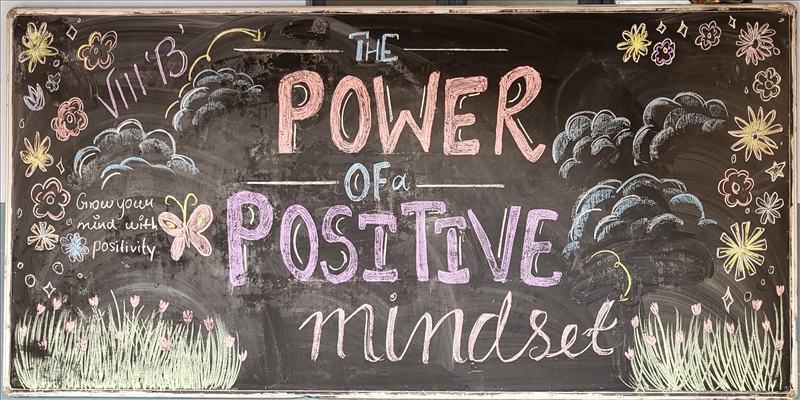 VIII 'B'
THE
POWER
OF a
POSITIVE
mindset
Grow your
mind with
positivity